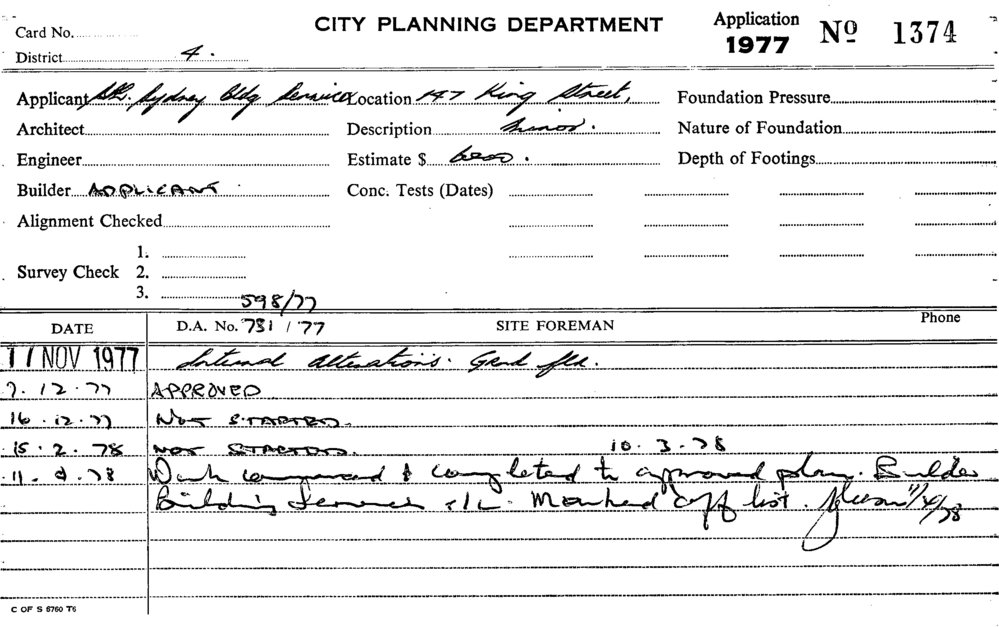 Card No.
CITY PLANNING DEPARTMENT
Application
1977
Nº 1374
District 4.
Applicant Sydney Bldg Services Location 147 King Street, Foundation Pressure
Architect Description Minor. Nature of Foundation
Engineer Estimate $ 6000. Depth of Footings
Builder APPLICANT Conc. Tests (Dates)
Alignment Checked
1.
Survey Check 2.
3.
598/77
DATE D.A. No. 731 / 77 SITE FOREMAN Phone
11 NOV 1977 Internal Alterations. Grnd flr.
7.12.77 APPROVED
16.12.77 NOT STARTED.
15.2.78 NOT STARTED. 10.3.78
11.4.78 Work commenced & completed to approved plan. Builder
Building Services P/L. Marked off list. 11/4/78
C OF S 6760 T6